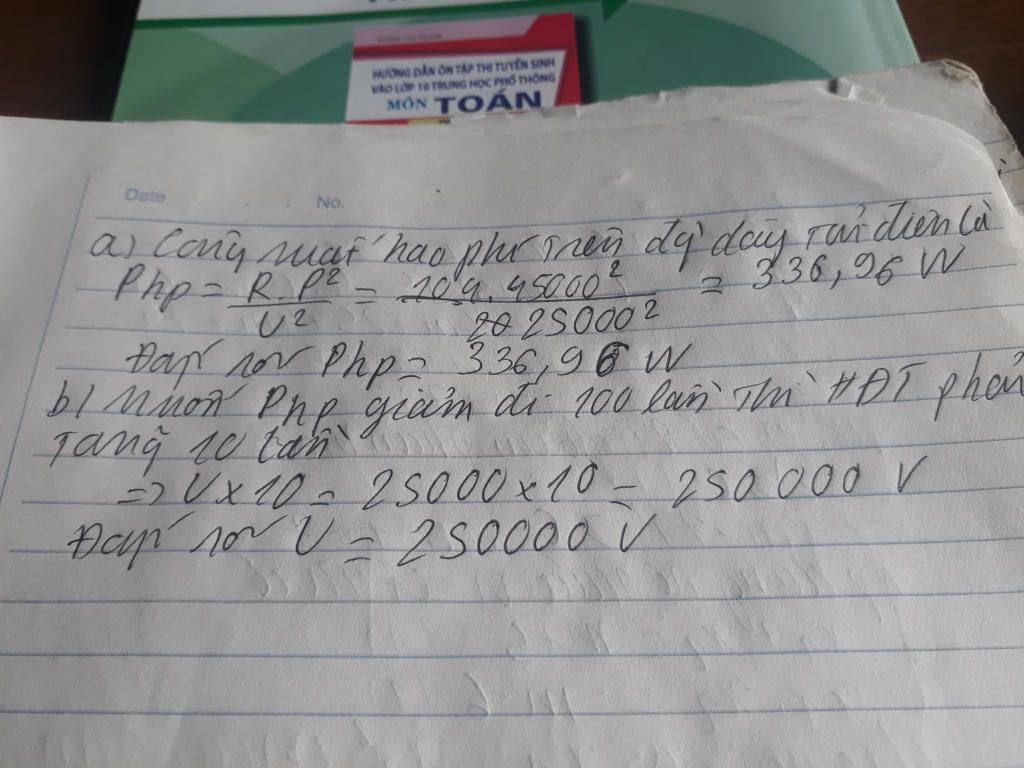 HƯỚNG DẪN ÔN TẬP THI TUYỂN SINH
VÀO LỚP 10 TRUNG HỌC PHỔ THÔNG
MÔN TOÁN
Date No.
a) Công suất hao phí trên đg dây tải điện là
Php = R.P² / U² = 104.45000² / 25000² = 336,96 W
Đáp số Php = 336,96 W
b) Muốn Php giảm đi 100 lần thì HĐT phải
tăng 10 lần
=> U x 10 = 25000 x 10 = 250 000 V
Đáp số U = 250000 V